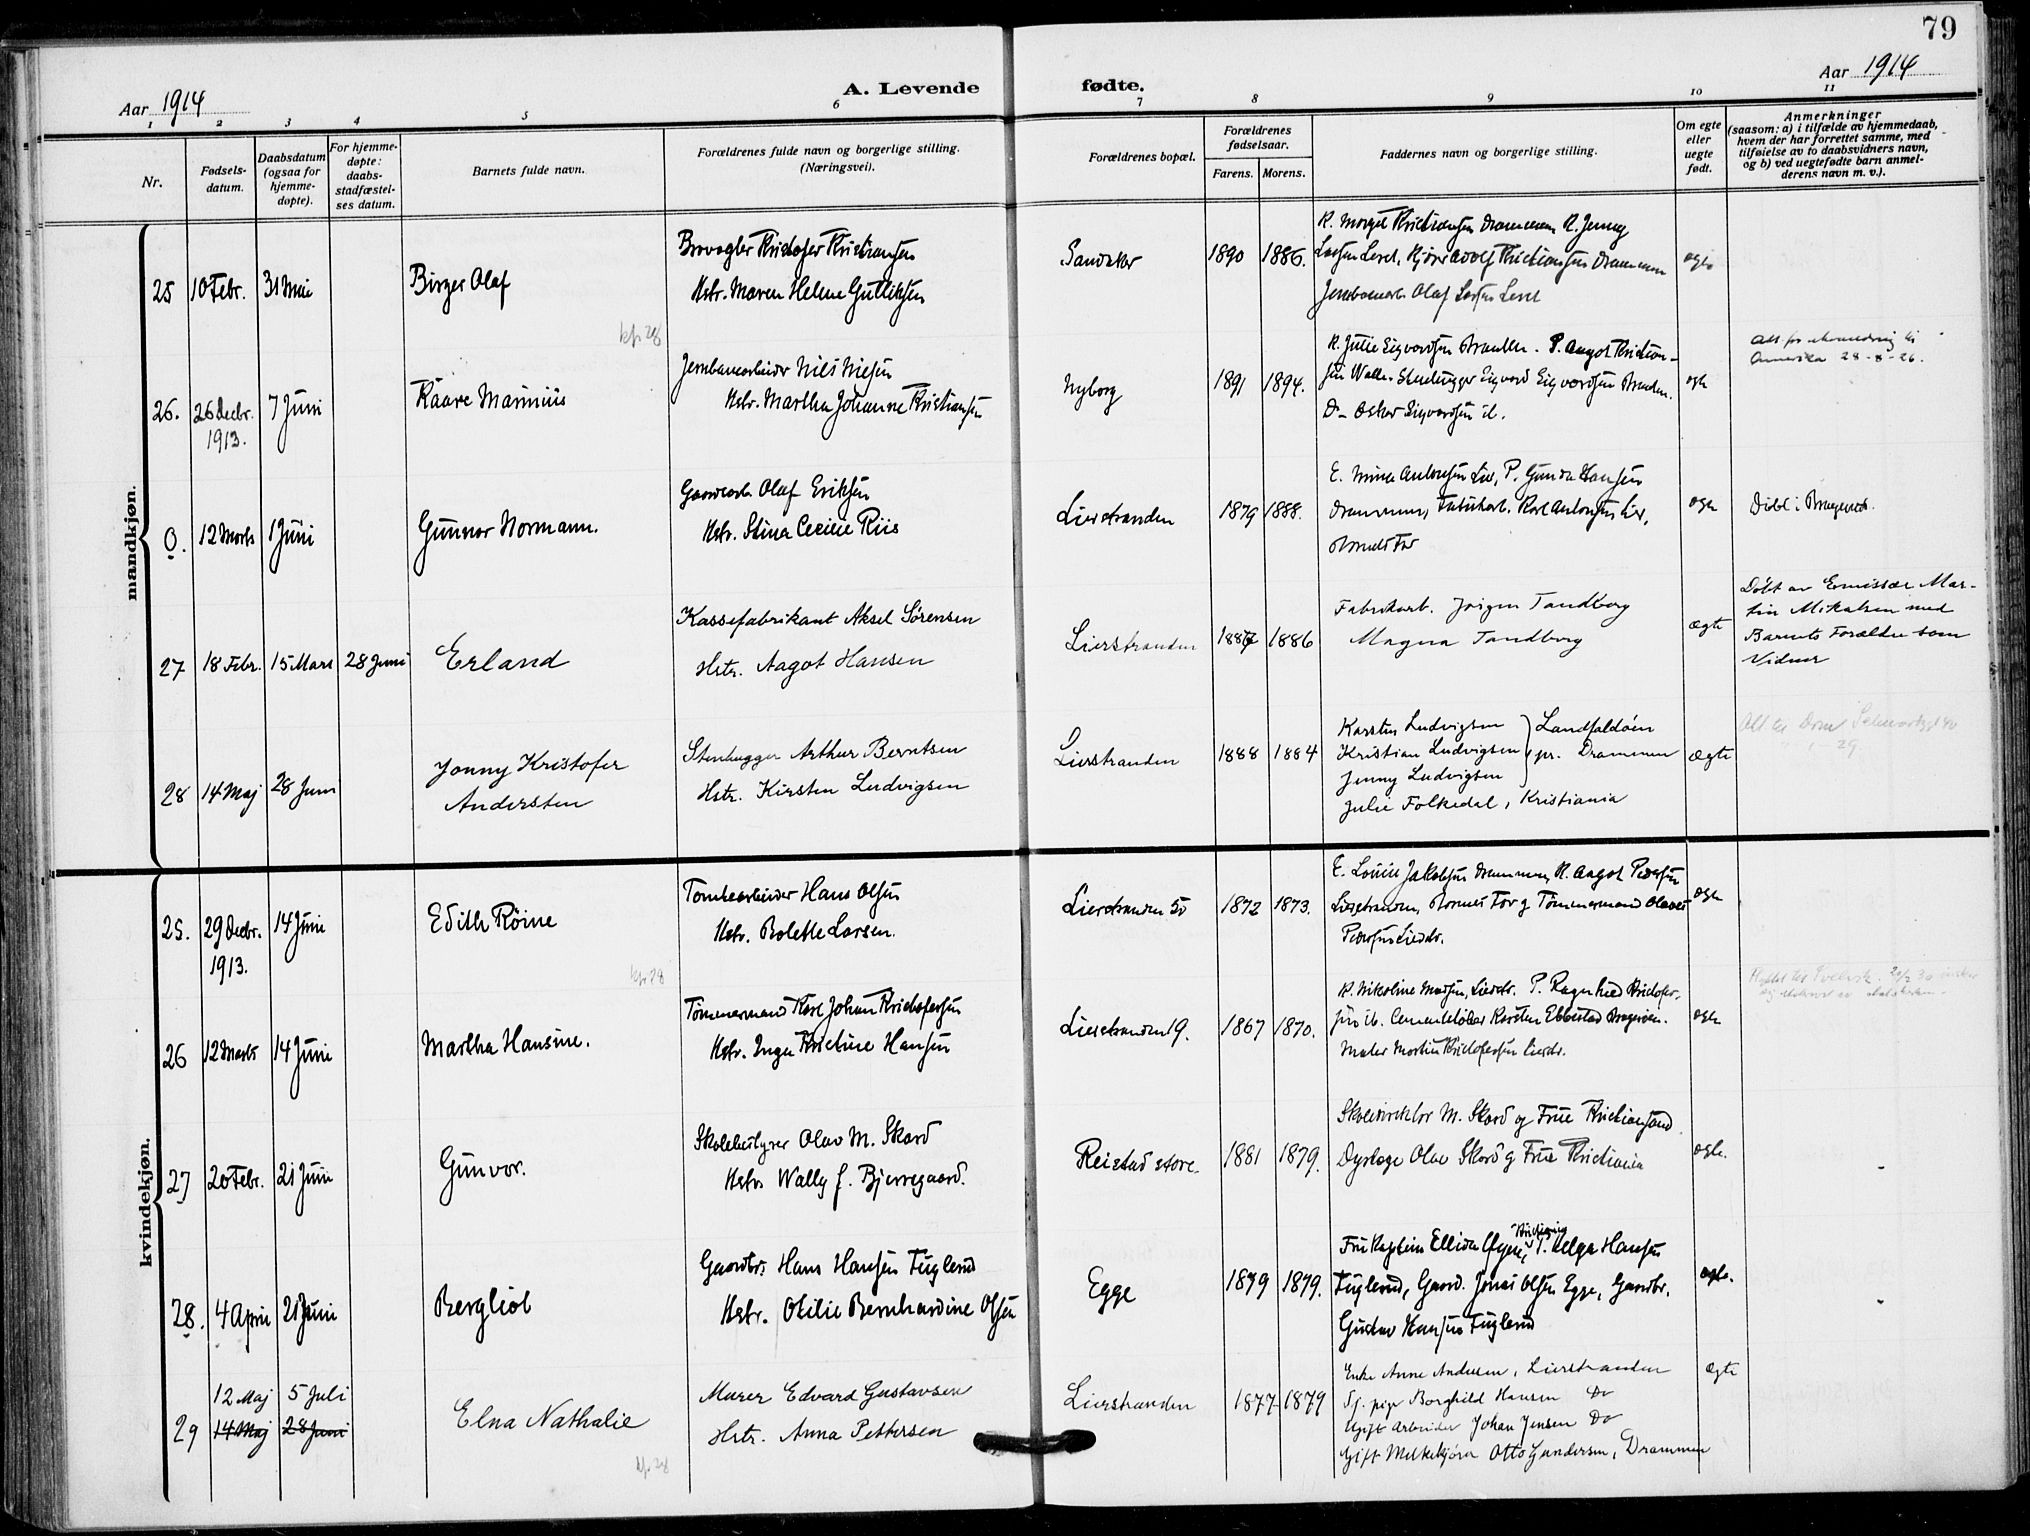 79
Aar 1914
A. Levende fødte.
Aar 1914
1 2 3 4 5 6 7 8 9 10 11
Nr.
Fødsels-
datum.
Daabsdatum
(ogsaa for
hjemme-
døpte).
For hjemme-
døpte:
daabs-
stadfæstel-
ses datum.
Barnets fulde navn.
Forældrenes fulde navn og borgerlige stilling.
(Næringsvei).
Forældrenes bopæl.
Forældrenes
fødselsaar.
Farens. Morens.
Faddernes navn og borgerlige stilling.
Om egte
eller
uegte
født.
Anmerkninger
(saasom: a) i tilfælde av hjemmedaab,
hvem der har forrettet samme, med
tilføielse av to daabsvidners navn,
og b) ved uegtefødte barn anmel-
derens navn m. v.).
mandkjøn.
25 10 Febr. 31 Mai
Birger Olaf
Kristofer Kristiansen
Hstr. Maren Helene Gulliksen
Sandaker
1890 1886.
Kristiansen Drammen K. Jenny
Larsen Adolf Kristiansen Drammen
Olaf Larsen
kp. 28
26. 26 Decbr. 7 Juni
1913.
Kaare Marinius
Jernbanearbeider Nils Nilsen
Hstr. Martha Johanne Kristiansen
Nyborg
1891 1894.
K. Julie Sigvardsen P. Aagot Kristian-
sen Stenhugger Sigvard Sigvardsen
Do Oskar Sigvardsen ib.
egte
Amerika 28-8-26.
0. 12 Marts 1 Juni
Gunnar Normann.
Olaf Eriksen
Hstr. Stina Cecilie Riis
Lierstranden
1879 1888.
E. Mina Antonsen Lier, P. Gunda Hansen
Drammen, Fabrikarb. Karl Antonsen Lier,
Barnets Far
egte
Døbt i Bragernes.
27 18 Febr. 15 Mars 28 Juni
Erland
Kassefabrikant Aksel Sørensen
Hstr. Aagot Hansen
Lierstranden
1887 1886
Fabrikarb. Jørgen Tandberg
Magna Tandberg
ægte
Døbt av Emissær Mar-
tin Mikalsen med
Barnets Forældre som
Vidner
28 14 Maj 28 Juni
Jonny Kristofer
Andersten
Stenhugger Arthur Berntsen
Hstr. Kirsten Ludvigsen
Lierstranden
1888 1884
Karsten Ludvigsen
Kristian Ludvigsen
Jenny Ludvigsen
Landfaldøien
pr. Drammen
Julie Folkedal, Kristiania
ægte
kvindekjøn.
25. 29 Decbr. 14 Juni
1913.
Edith Røine
Tomtearbeider Hans Olsen
Hstr. Bolette Larsen.
Lierstranden 50
1872 1873.
E. Louise Jakobsen Drammen, K. Aagot Pedersen
Lierstranden, Barnets Far og Tømmermand Olaves
Pedersen Lierstr.
egte
kp. 28
26 12 Marts 14 Juni
Martha Hansine.
Tømmermand Karl Johan Kristofersen
Hstr. Inga Kristine Hansen
Lierstranden 19.
1867 1870.
K. Nikoline Madsen, Lierstr. P. Ragnhild Kristofer-
sen ib. Cementstøber Karsten Ebbestad
Maler Martin Kristofersen Lierstr.
egte
27 20 Febr. 21 Juni
Gunvor.
Skolebestyrer Olav M. Skard
Hstr. Wally f. Bjerregaard.
Reistad store
1881 1879.
Skoledirektør M. Skard og Frue Kristiansand
Dyrlæge Olav Skard og Frue Kristiania
egte.
28. 4 April 21 Juni
Bergliot
Gaardbr. Hans Hansen Fuglerud
Hstr. Otilie Bernhardine Olsen
Egge
1879 1879.
Fru Kaptein P. Helga Hansen
Fuglerud, Gaard. Jonas Olsen Egge, Gaardbr.
Gustav Hansen Fuglerud
egte.
12 Maj 5 Juli
29 14 Maj 28 Juni
Elna Nathalie
Murer Edvard Gustavsen
Hstr. Anna Pettersen
Lierstranden
1877 1879
Enke Anne Andersen, Lierstranden
Tj. pige Borghild Hansen Do
Ugift Arbeider Johan Jensen Do
Gift Melkekjører Otto Gundersen, Drammen
ægte
kp. 28